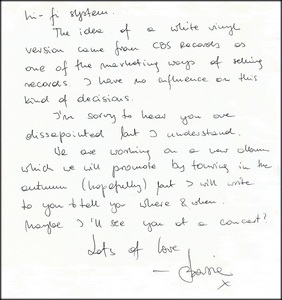 hi-fi system.
The idea of a white vinyl
version came from CBS Records as
one of the marketing ways of selling
records. I have no influence on this
kind of decisions.
I'm sorry to hear you are
dissepointed but I understand.
We are working on a new album
which we will promote by touring in the
autumn (hopefully) but I will write
to you to tell you where & when.
Maybe I'll see you at a concert?
Lots of love
– Basia
x